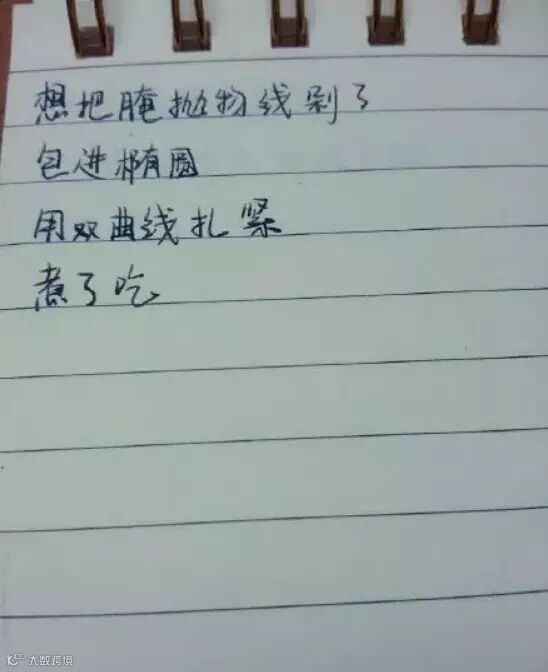 想把腌抛物线剁了
包进椭圆
用双曲线扎紧
煮了吃
大数跨境